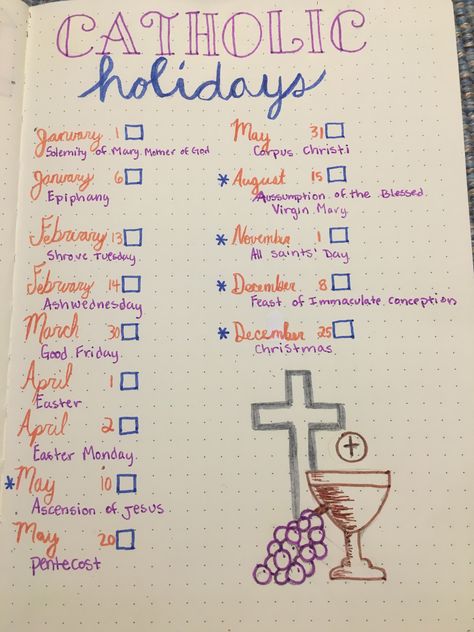 CATHOLIC
holidays
January 1
Solemnity of Mary. Mother of God
January 6
Epiphany
February 13
Shrove Tuesday
February 14
Ashwednesday
March 30
Good Friday.
April 1
Easter
April 2
Easter Monday.
* May 10
Ascension of Jesus
May 20
pentecost
May 31
Corpus Christi
* August 15
Aussumption of the Blessed
Virgin Mary
* November 1
All Saints' Day
* December 8
Feast of Immaculate conception
* December 25
Christmas